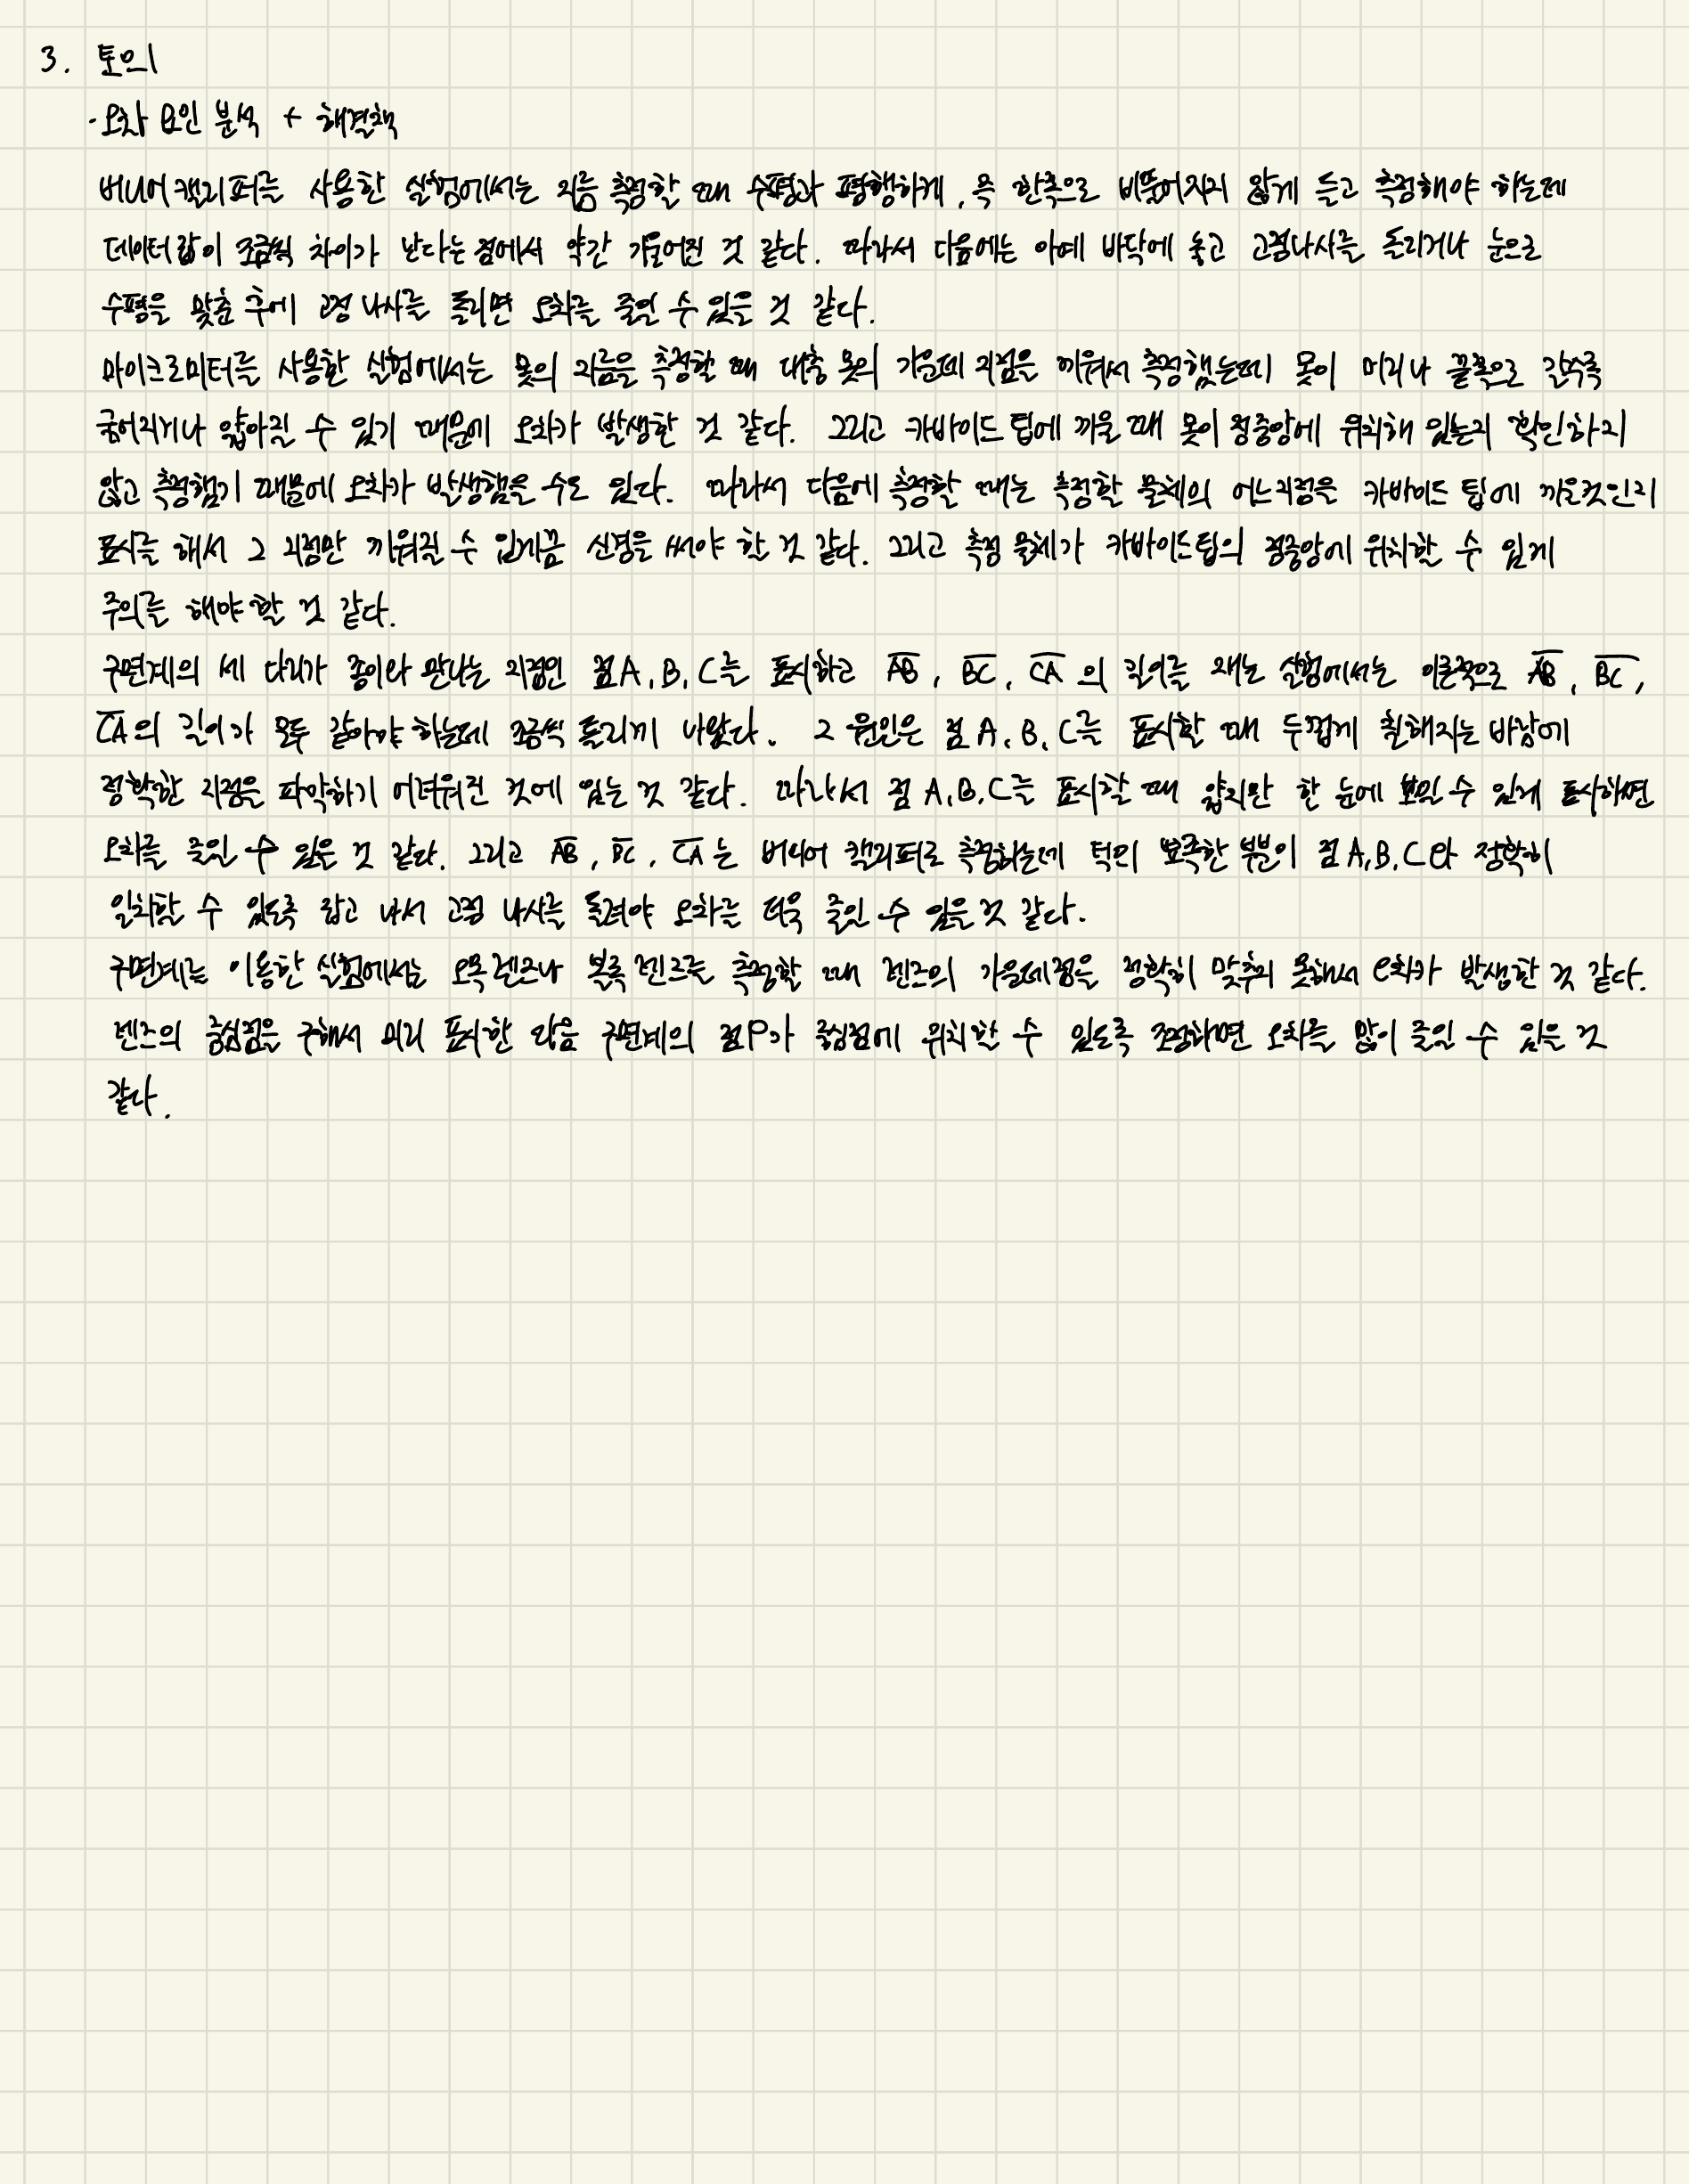 3. 토의
· 오차 요인 분석 + 해결책
버니어캘리퍼를 사용한 실험에서는 지름 측정할 때 수평과 평행하게, 즉 한쪽으로 비뚤어지지 않게 들고 측정해야 하는데
데이터 값이 조금씩 차이가 난다는 점에서 약간 기울어진 것 같다. 따라서 다음에는 아예 바닥에 놓고 고정나사를 돌리거나 눈으로
수평을 맞춘 후에 고정 나사를 돌리면 오차를 줄일 수 있을 것 같다.
마이크로미터를 사용한 실험에서는 못의 지름을 측정할 때 대충 못의 가운데 지점을 끼워서 측정했는데 못이 머리나 끝쪽으로 갈수록
굵어지거나 얇아질 수 있기 때문에 오차가 발생한 것 같다. 그리고 카바이드 팁에 끼울 때 못이 정중앙에 위치해 있는지 확인하지
않고 측정했기 때문에 오차가 발생했을 수도 있다. 따라서 다음에 측정할 때는 측정할 물체의 어느지점을 카바이드 팁에 끼울것인지
표시를 해서 그 지점만 끼워질 수 있게끔 신경을 써야 할 것 같다. 그리고 측정 물체가 카바이드팁의 정중앙에 위치할 수 있게
주의를 해야 할 것 같다.
구면계의 세 다리가 종이와 만나는 지점인 점 A, B, C를 표시하고 A̅B̅, B̅C̅, C̅A̅의 길이를 재는 실험에서는 이론적으로 A̅B̅, B̅C̅,
C̅A̅의 길이가 모두 같아야 하는데 조금씩 틀리게 나왔다. 그 원인은 점 A, B, C를 표시할 때 두껍게 칠해지는 바람에
정확한 지점을 파악하기 어려워진 것에 있는 것 같다. 따라서 점 A, B, C를 표시할 때 얇지만 한 눈에 보일 수 있게 표시하면
오차를 줄일 수 있을 것 같다. 그리고 A̅B̅, B̅C̅, C̅A̅는 버니어 캘리퍼로 측정하는데 턱의 뾰족한 부분이 점 A, B, C와 정확히
일치할 수 있도록 잡고 나서 고정 나사를 돌려야 오차를 더욱 줄일 수 있을 것 같다.
구면계를 이용한 실험에서는 오목렌즈나 볼록 렌즈를 측정할 때 렌즈의 가운데점을 정확히 맞추지 못해서 오차가 발생한 것 같다.
렌즈의 중심점을 구해서 미리 표시한 다음 구면계의 점P가 중심점에 위치할 수 있도록 조정하면 오차를 많이 줄일 수 있을 것
같다.